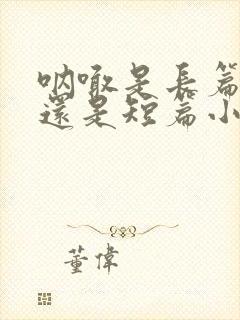 呐喊是長篇
還是短篇小
董偉